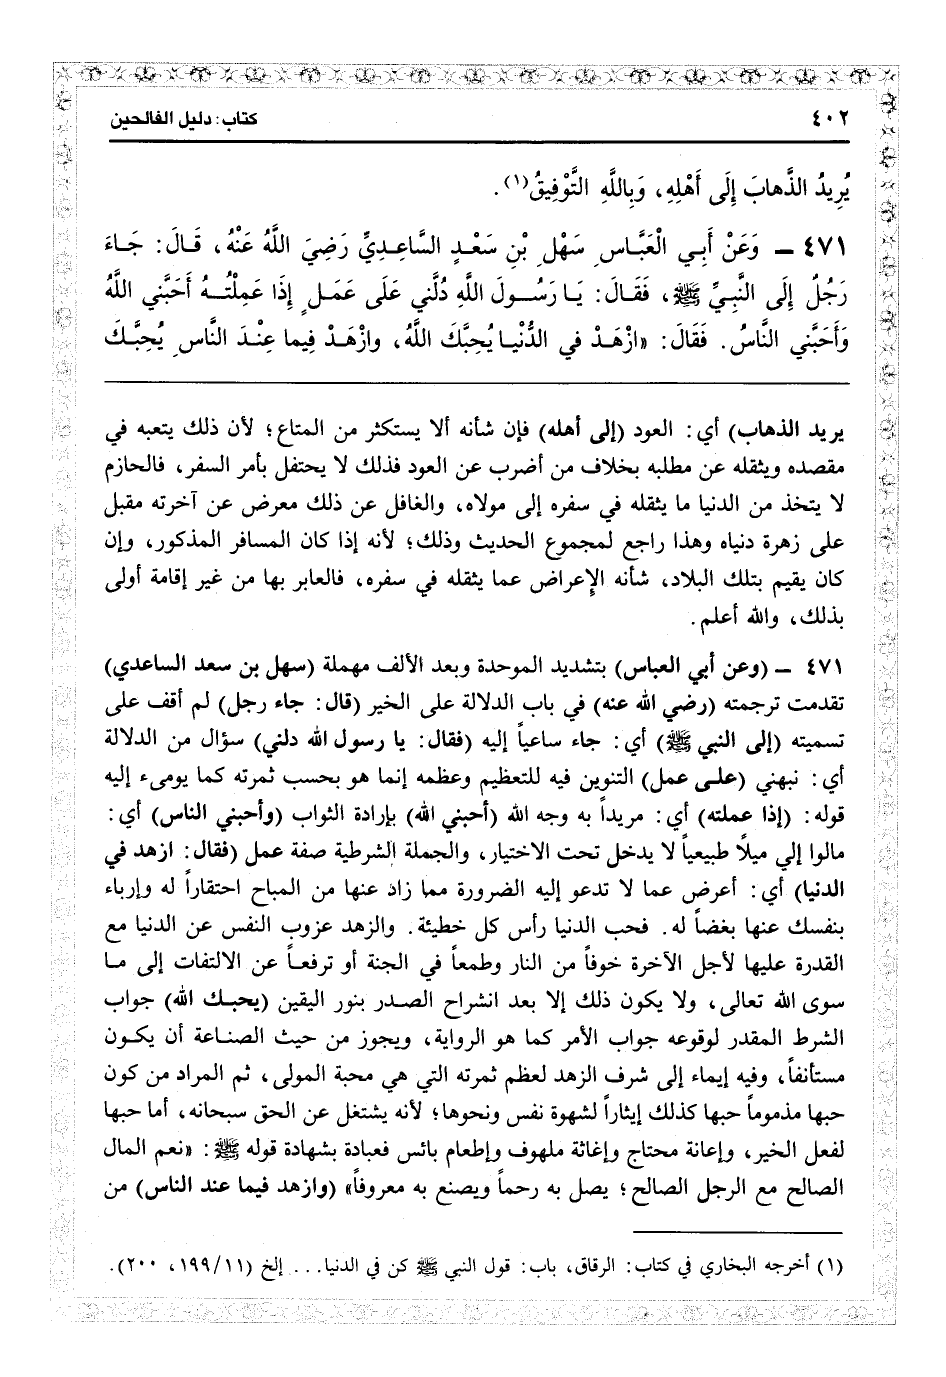 ٤٠٢ كتاب: دليل الفالحين
يُرِيدُ الذَّهابَ إِلَى أَهْلِهِ، وَبِاللَّهِ التَّوْفِيقُ(١).
٤٧١ - وَعَنْ أَبِي الْعَبَّاسِ سَهْلِ بْنِ سَعْدٍ السَّاعِدِيِّ رَضِيَ اللَّهُ عَنْهُ، قَالَ: جَاءَ
رَجُلٌ إِلَى النَّبِيِّ ﷺ، فَقَالَ: يَا رَسُولَ اللَّهِ دُلَّنِي عَلَى عَمَلٍ إِذَا عَمِلْتُهُ أَحَبَّنِي اللَّهُ
وَأَحَبَّنِي النَّاسُ. فَقَالَ: «ازْهَدْ فِي الدُّنْيا يُحِبَّكَ اللَّهُ، وازْهَدْ فِيما عِنْدَ النَّاسِ يُحِبَّكَ
يريد الذهاب) أي: العود (إلى أهله) فإن شأنه ألا يستكثر من المتاع؛ لأن ذلك يتعبه في
مقصده ويثقله عن مطلبه بخلاف من أضرب عن العود فذلك لا يحتفل بأمر السفر، فالحازم
لا يتخذ من الدنيا ما يثقله في سفره إلى مولاه، والغافل عن ذلك معرض عن آخرته مقبل
على زهرة دنياه وهذا راجع لمجموع الحديث وذلك؛ لأنه إذا كان المسافر المذكور، وإن
كان يقيم بتلك البلاد، شأنه الإعراض عما يثقله في سفره، فالعابر بها من غير إقامة أولى
بذلك، والله أعلم.
٤٧١ - (وعن أبي العباس) بتشديد الموحدة وبعد الألف مهملة (سهل بن سعد الساعدي)
تقدمت ترجمته (رضي الله عنه) في باب الدلالة على الخير (قال: جاء رجل) لم أقف على
تسميته (إلى النبي ﷺ) أي: جاء ساعياً إليه (فقال: يا رسول الله دلني) سؤال من الدلالة
أي: نبهني (على عمل) التنوين فيه للتعظيم وعظمه إنما هو بحسب ثمرته كما يومىء إليه
قوله: (إذا عملته) أي: مريداً به وجه الله (أحبني الله) بإرادة الثواب (وأحبني الناس) أي:
مالوا إلي ميلاً طبيعياً لا يدخل تحت الاختيار، والجملة الشرطية صفة عمل (فقال: ازهد في
الدنيا) أي: أعرض عما لا تدعو إليه الضرورة مما زاد عنها من المباح احتقاراً له وإرباء
بنفسك عنها بغضاً له. فحب الدنيا رأس كل خطيئة. والزهد عزوب النفس عن الدنيا مع
القدرة عليها لأجل الآخرة خوفاً من النار وطمعاً في الجنة أو ترفعاً عن الالتفات إلى ما
سوى الله تعالى، ولا يكون ذلك إلا بعد انشراح الصدر بنور اليقين (يحبك الله) جواب
الشرط المقدر لوقوعه جواب الأمر كما هو الرواية، ويجوز من حيث الصناعة أن يكون
مستأنفاً، وفيه إيماء إلى شرف الزهد لعظم ثمرته التي هي محبة المولى، ثم المراد من كون
حبها مذموماً حبها كذلك إيثاراً لشهوة نفس ونحوها؛ لأنه يشتغل عن الحق سبحانه، أما حبها
لفعل الخير، وإعانة محتاج وإغاثة ملهوف وإطعام بائس فعبادة بشهادة قوله ﷺ: «نعم المال
الصالح مع الرجل الصالح؛ يصل به رحماً ويصنع به معروفاً» (وازهد فيما عند الناس) من
(١) أخرجه البخاري في كتاب: الرقاق، باب: قول النبي ﷺ كن في الدنيا... إلخ (١٩٩/١١، ٢٠٠).